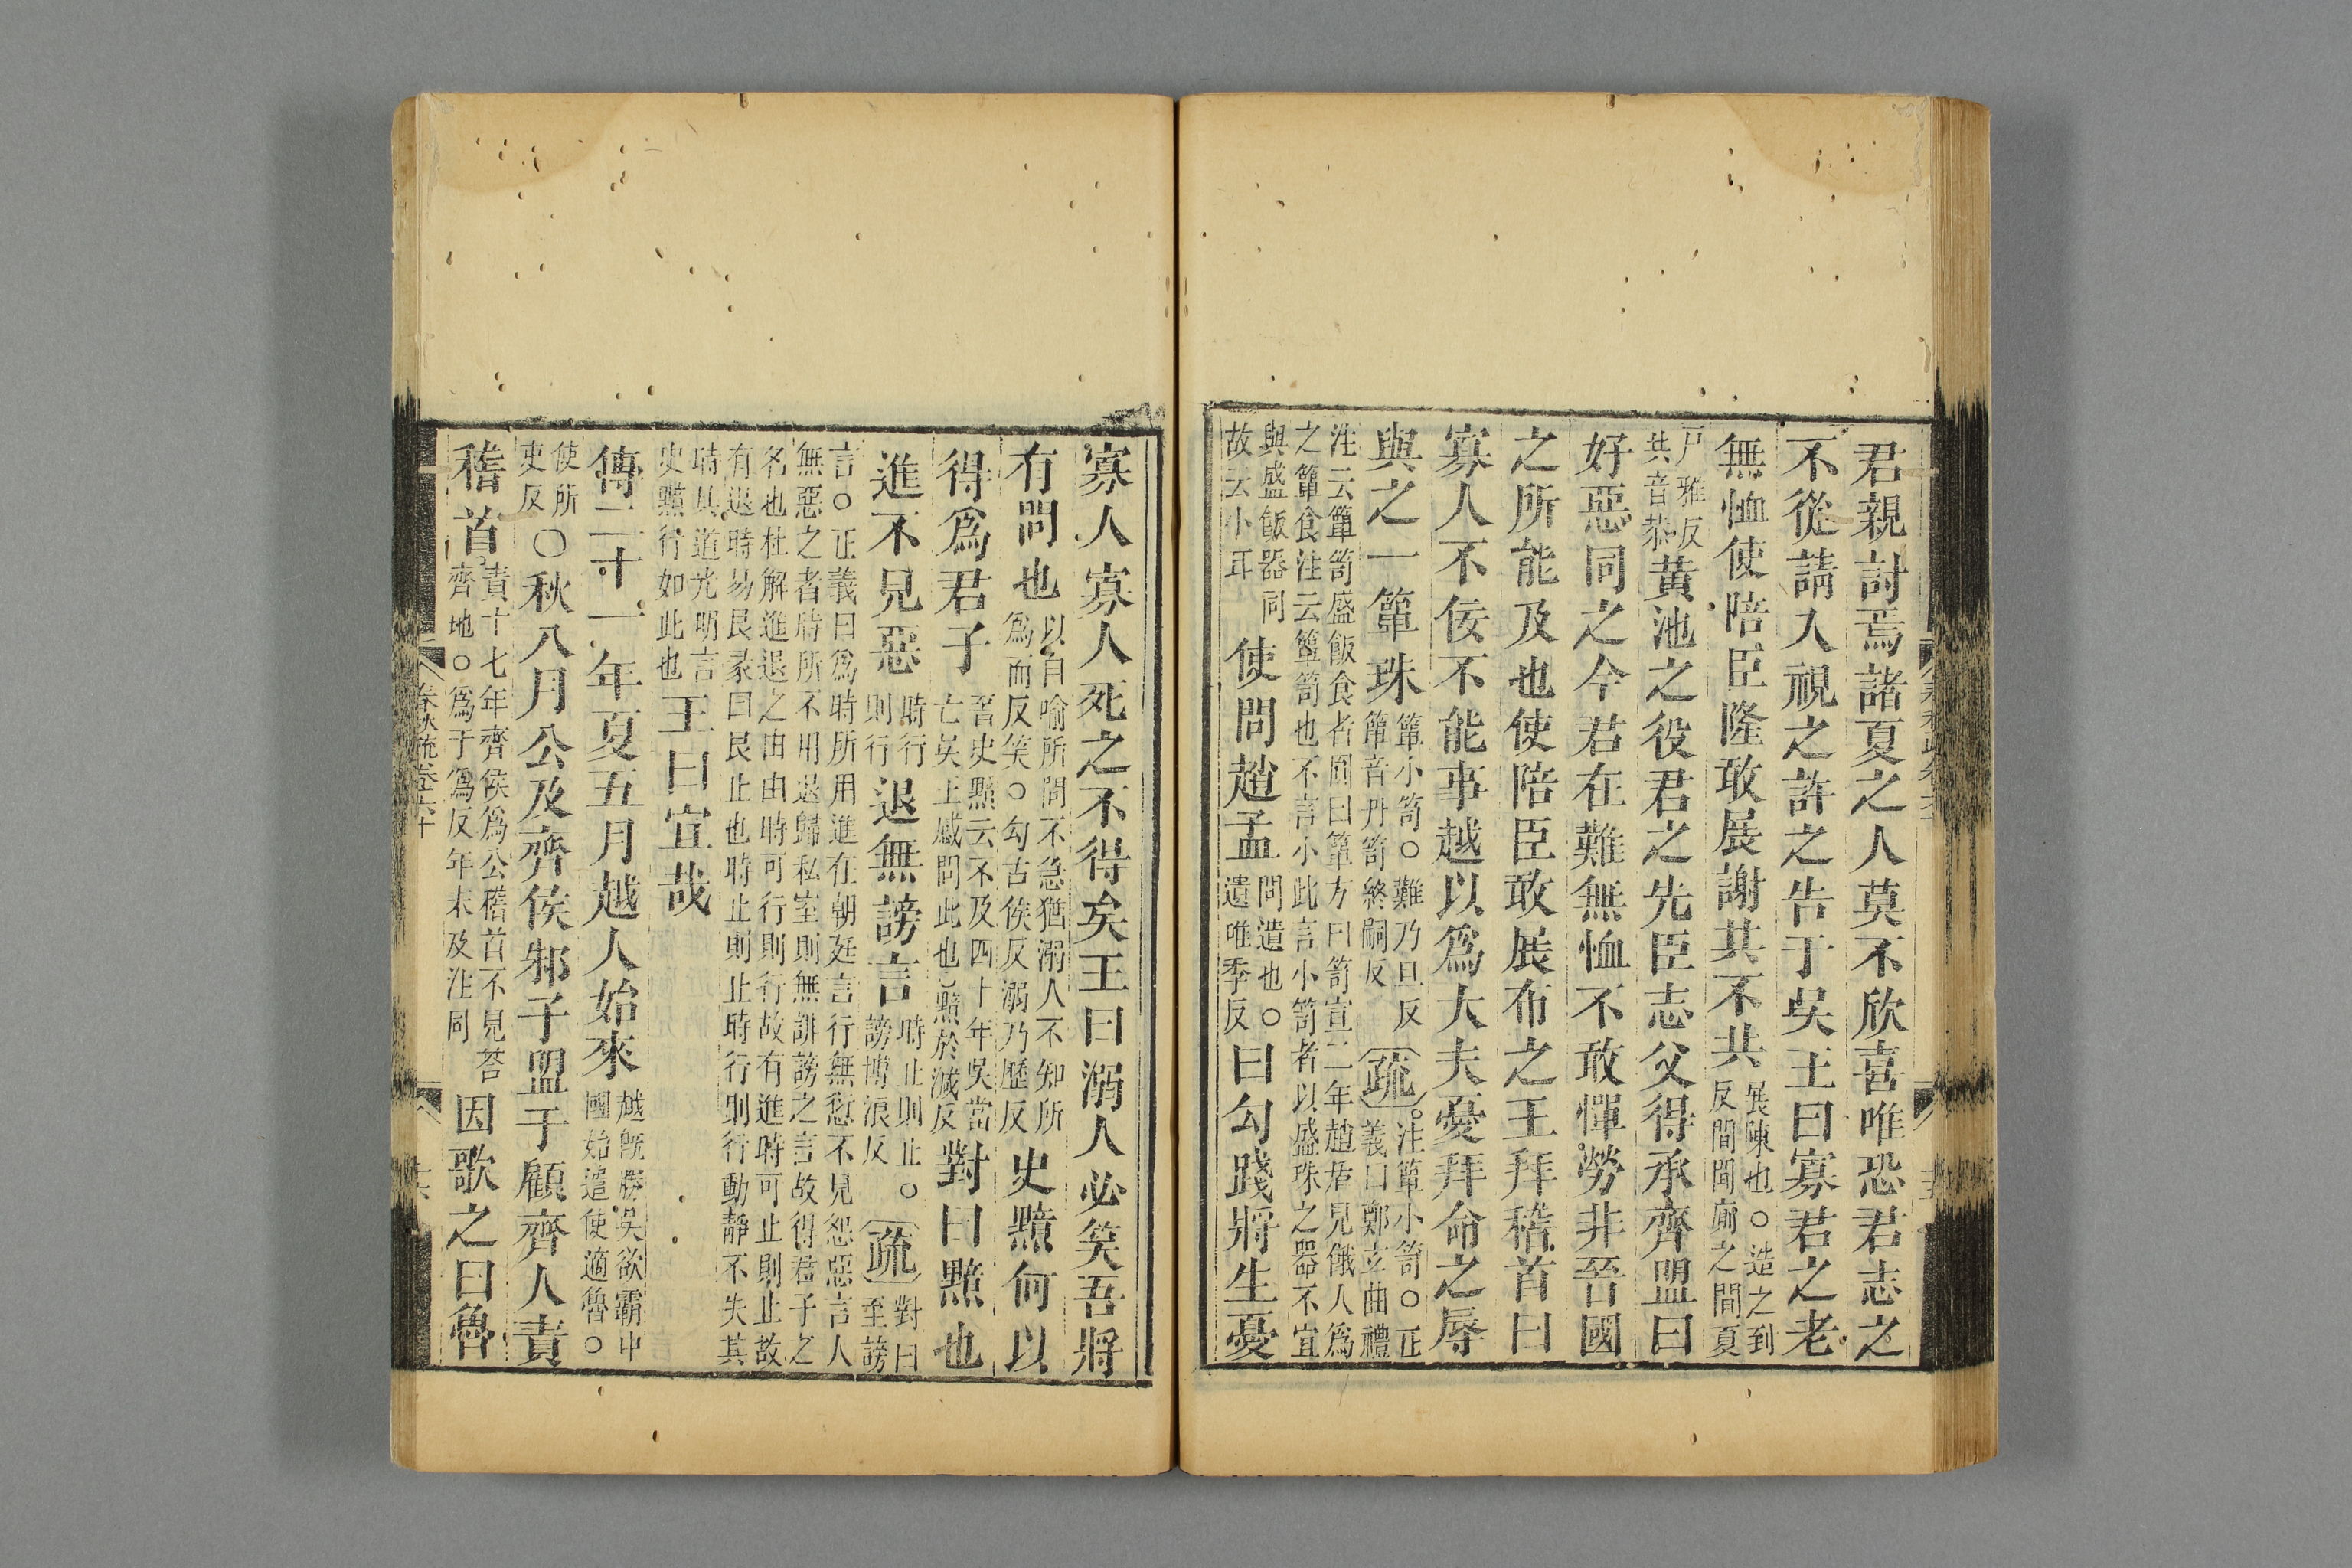 君親討焉諸夏之人莫不欣喜唯恐君志之
不從請入視之許之告于吳王曰寡君之老
無恤使陪臣隆敢展謝其不共展陳也○造之到反間間厠之間夏
戶雅反共音恭黃池之役君之先臣志父得承齊盟曰
好惡同之今君在難無恤不敢憚勞非晉國
之所能及也使陪臣敢展布之王拜稽首曰
寡人不佞不能事越以爲大夫憂拜命之辱
與之一簞珠簞小笥○難乃旦反簞音丹笥終嗣反疏注簞小笥○正義曰鄭玄曲禮
注云簞笥盛飯食者圓曰簞方曰笥宣二年趙盾見餓人爲
之簞食注云簞笥也不言小此言小笥者以盛珠之器不宜
與盛飯器同故云小耳使問趙孟問遺也○遺唯季反曰勾踐將生憂
寡人寡人死之不得矣王曰溺人必笑吾將
有問也以自喻所問不急猶溺人不知所爲而反笑○勾古侯反溺乃歷反史黯何以
得爲君子晉史黯云不及四十年吳當亡吳王感問此也○黯於減反對曰黯也
進不見惡時行則行退無謗言時止則止○謗博浪反疏對曰至謗
言○正義曰爲時所用進在朝廷言行無愆不見怨惡言人
無惡之者時所不用退歸私室則無誹謗之言故得君子之
名也杜解進退之由由時可行則行故有進時可止則止故
有退時易艮彖曰艮止也時止則止時行則行動靜不失其
時其道光明言史黯行如此也王曰宜哉
傳二十一年夏五月越人始來越旣勝吳欲霸中國始遣使適魯○
使所吏反○秋八月公及齊侯邾子盟于顧齊人責
稽首責十七年齊侯爲公稽首不見荅齊地○爲于爲反年末及注同因歌之曰魯
春秋疏卷六十